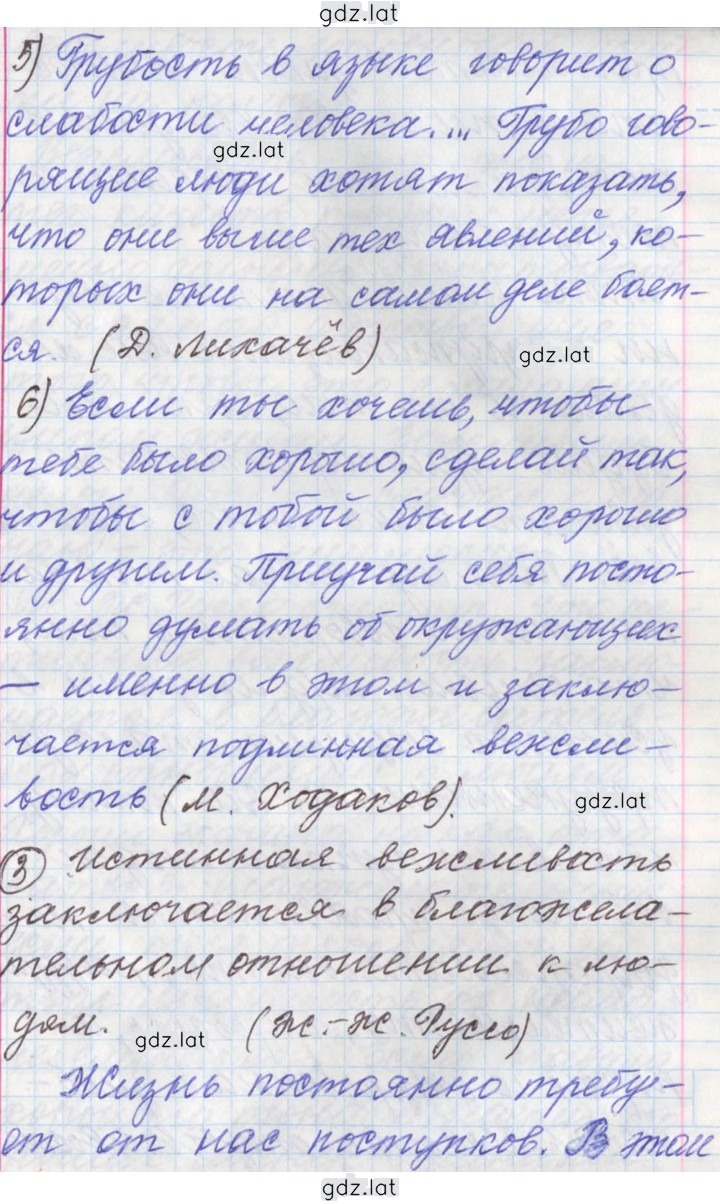 gdz.lat
5) Грубость в языке говорит о
слабости человека.... Грубо гово-
gdz.lat
рящие люди хотят показать,
что они выше тех явлений, ко-
торых они на самом деле боят-
ся. (Д. Лихачёв)
gdz.lat
6) Если ты хочешь, чтобы
тебе было хорошо, сделай так,
чтобы с тобой было хорошо
и другим. Приучай себя посто-
янно думать об окружающих
– именно в этом и заклю-
чается подлинная вежли-
вость (М. Ходаков).
gdz.lat
3 Истинная вежливость
заключается в благожела-
тельном отношении к лю-
дям. (Ж.-Ж. Руссо)
gdz.lat
Жизнь постоянно требу-
ет от нас поступков. В этом
gdz.lat